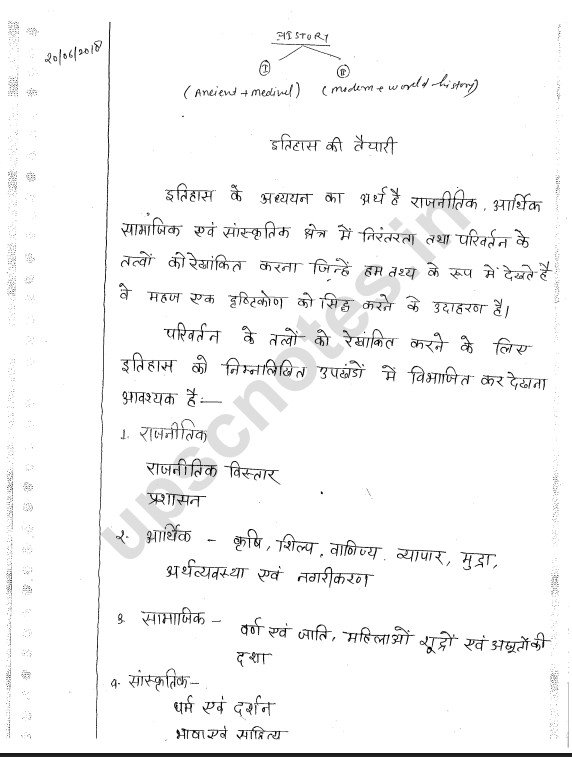 20/06/2018
HISTORY
I II
(Ancient + medival) (modern + world history)
इतिहास की तैयारी
इतिहास के अध्ययन का अर्थ है राजनीतिक, आर्थिक
सामाजिक एवं सांस्कृतिक क्षेत्र में निरंतरता तथा परिवर्तन के
तत्वों को रेखांकित करना जिन्हें हम तथ्य के रूप में देखते है
वे महज एक दृष्टिकोण को सिद्ध करने के उदाहरण है।
परिवर्तन के तत्वों को रेखांकित करने के लिए
इतिहास को निम्नलिखित उपखंडों में विभाजित कर देखना
आवश्यक है:—
1. राजनीतिक
राजनीतिक विस्तार
प्रशासन
2. आर्थिक - कृषि, शिल्प, वाणिज्य व्यापार, मुद्रा,
अर्थव्यवस्था एवं नगरीकरण
3. सामाजिक -
वर्ण एवं जाति, महिलाओं शूद्रों एवं अछूतों की
दशा
4. सांस्कृतिक-
धर्म एवं दर्शन
भाषा एवं साहित्य
upscnotes.in